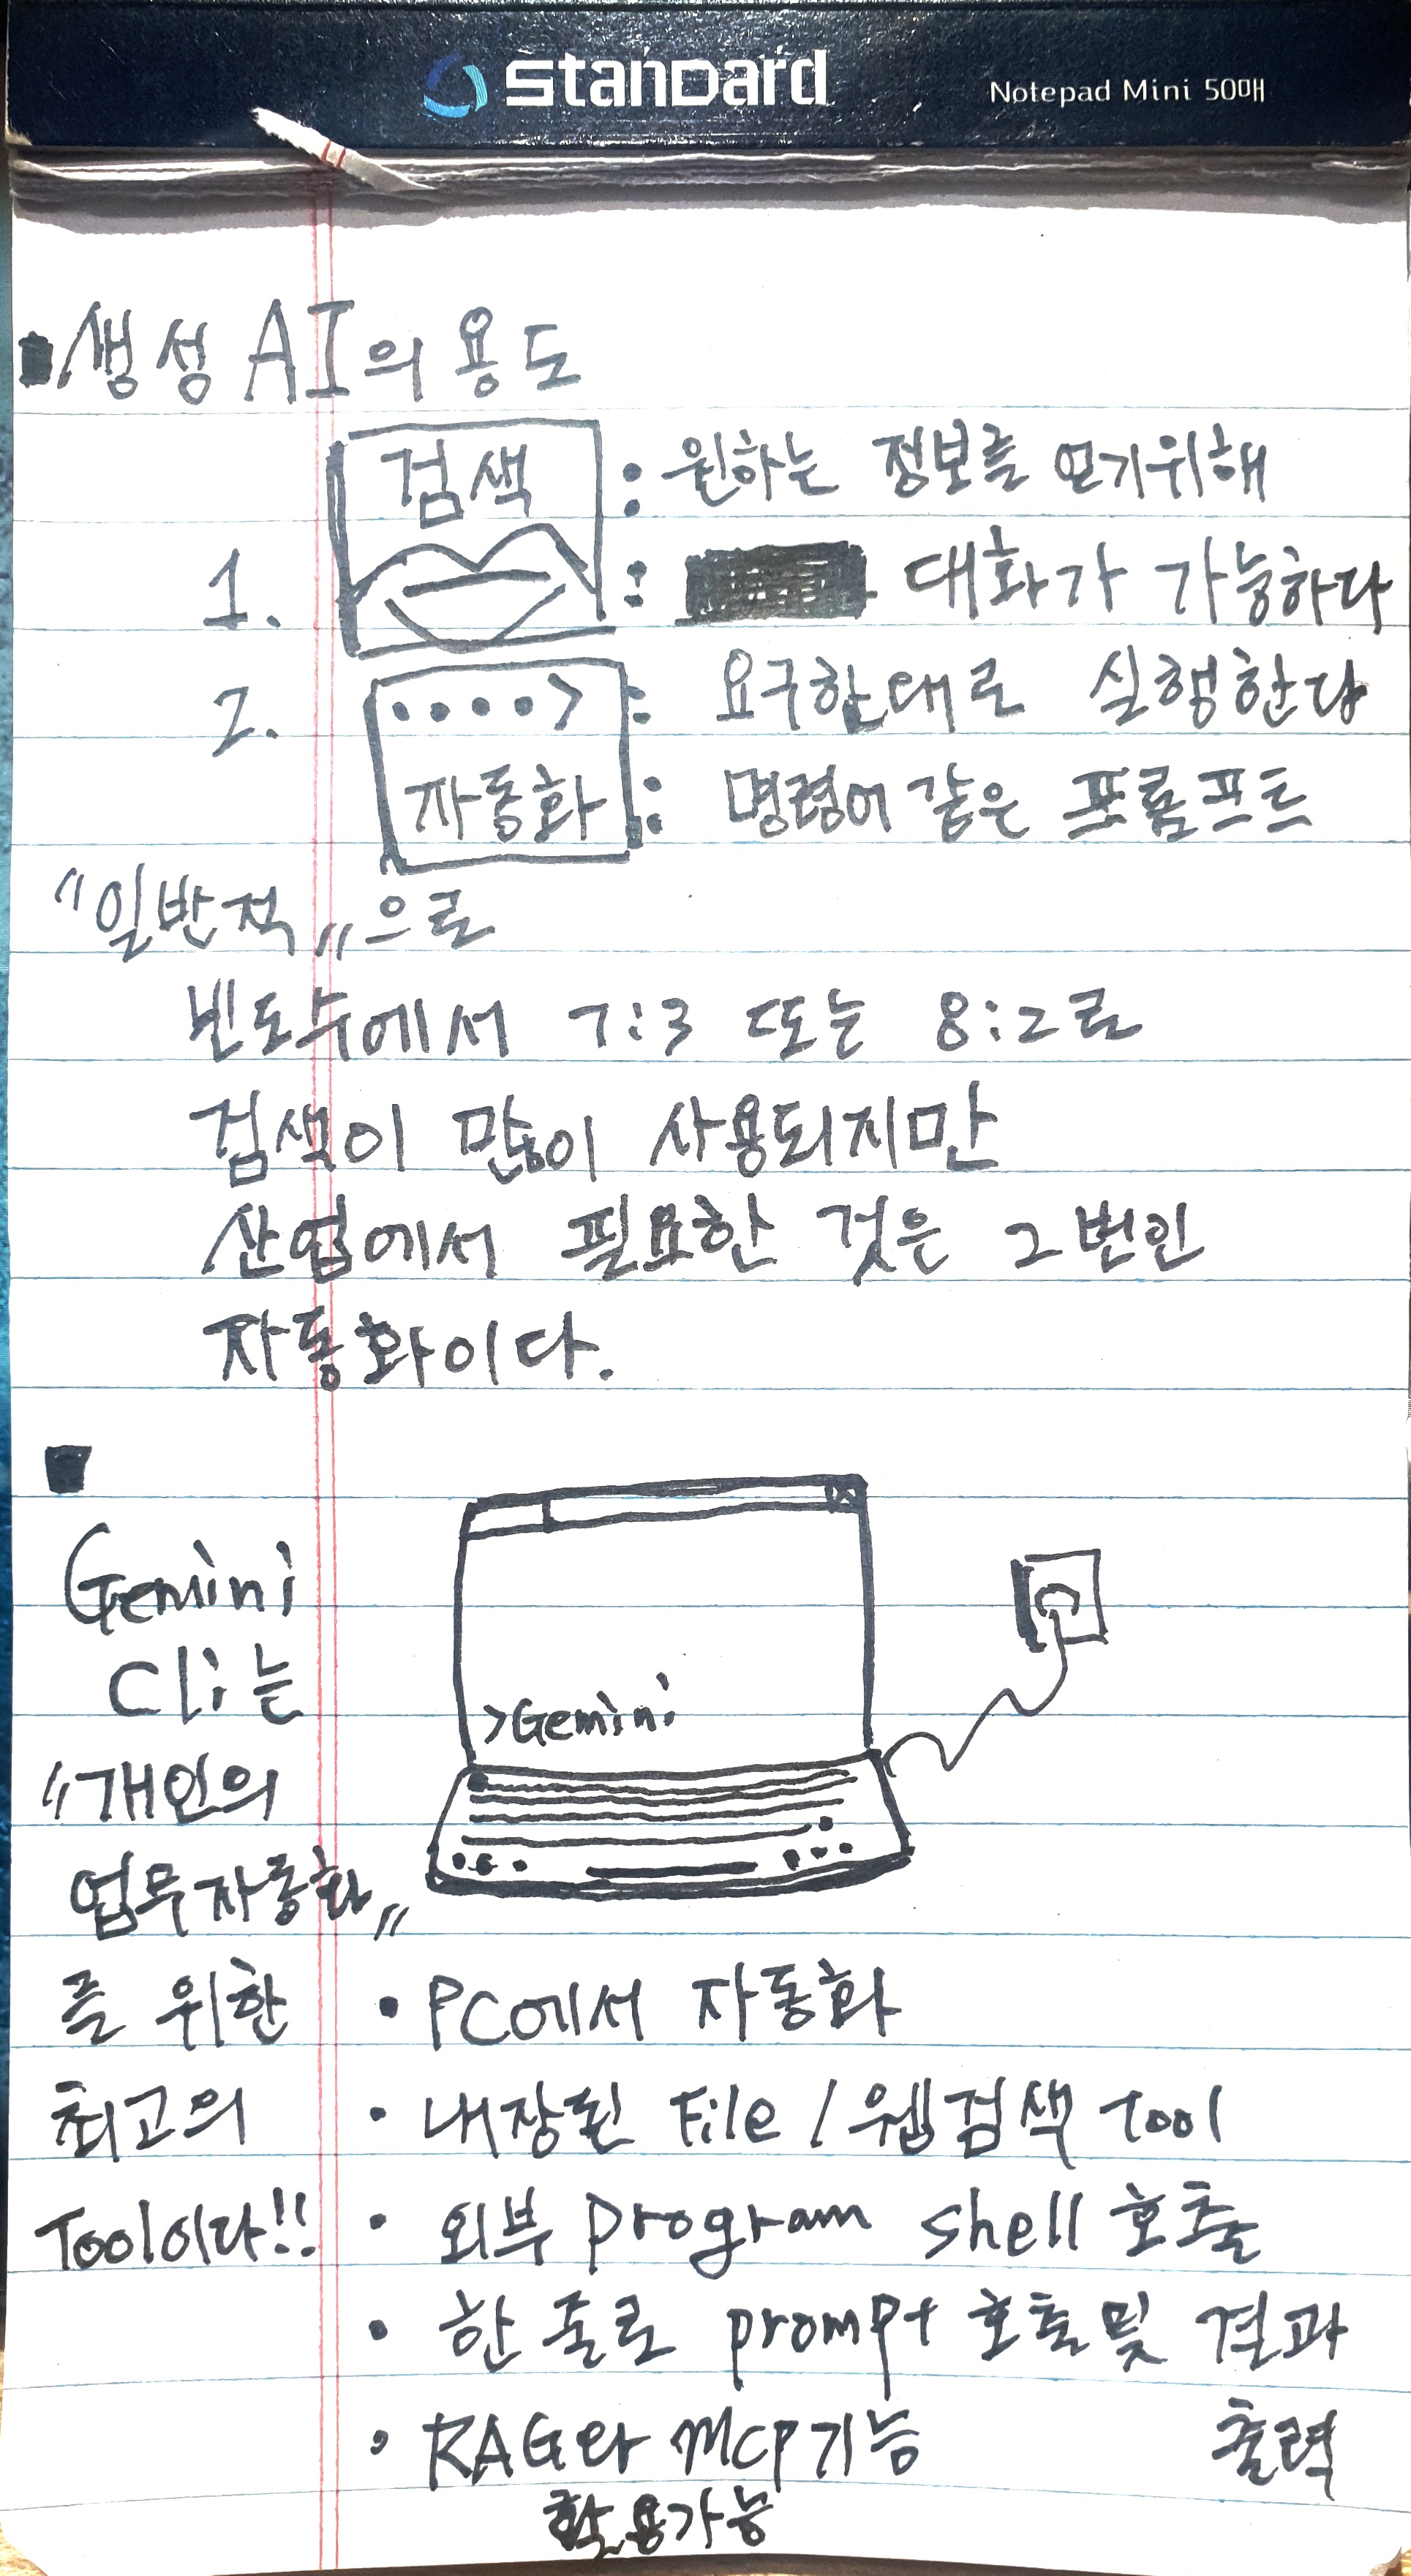 standard
Notepad Mini 50매
■생성 AI의 용도
검색 : 원하는 정보를 얻기위해
1. : 대화가 가능하다
2. ....> : 요구한대로 실행한다
자동화 : 명령어 같은 프롬프트
"일반적"으로
빈도수에서 7:3 또는 8:2로
검색이 많이 사용되지만
산업에서 필요한 것은 2번인
자동화이다.
■
Gemini
Cli는
>Gemini
"개인의
업무자동화"
를 위한
최고의
Tool이다!!
• PC에서 자동화
• 내장된 File / 웹검색 Tool
• 외부 program shell 호출
• 한 줄로 prompt 호출 및 결과
출력
• RAG와 MCP기능
활용가능